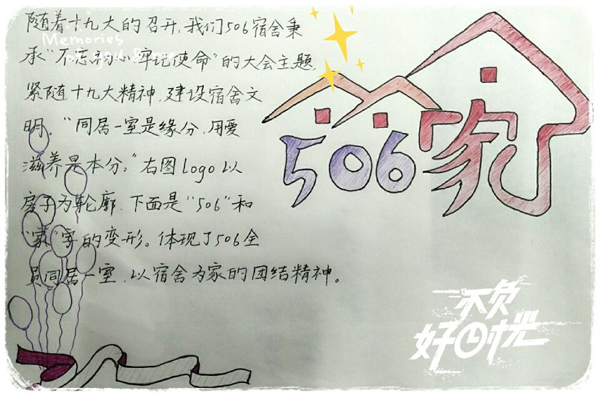 随着十九大的召开,我们506宿舍秉
承"不忘初心牢记使命"的大会主题,
紧随十九大精神,建设宿舍文
明。"同居一室是缘分,用爱
滋养是本分。"右图Logo以
房子为轮廓,下面是"506"和
"家"字的变形。体现了506全
员同居一室,以宿舍为家的团结精神。
Memories
506家
不负
好时光